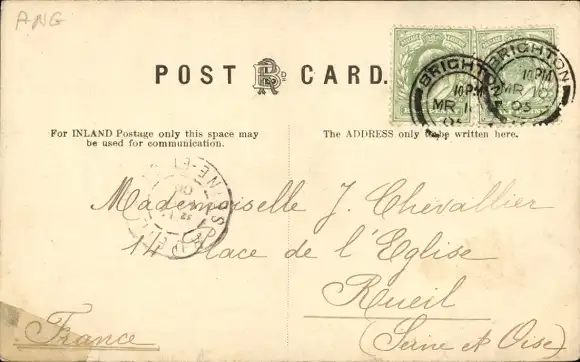 ANG
POST CARD.
BRIGHTON
10 PM
MR 1
BRIGHTON
10 PM
MR 18
03
For INLAND Postage only this space may
be used for communication.
The ADDRESS only to be written here.
Mademoiselle J. Chevallier
14 Place de l'Eglise
Rueil
(Seine et Oise)
France